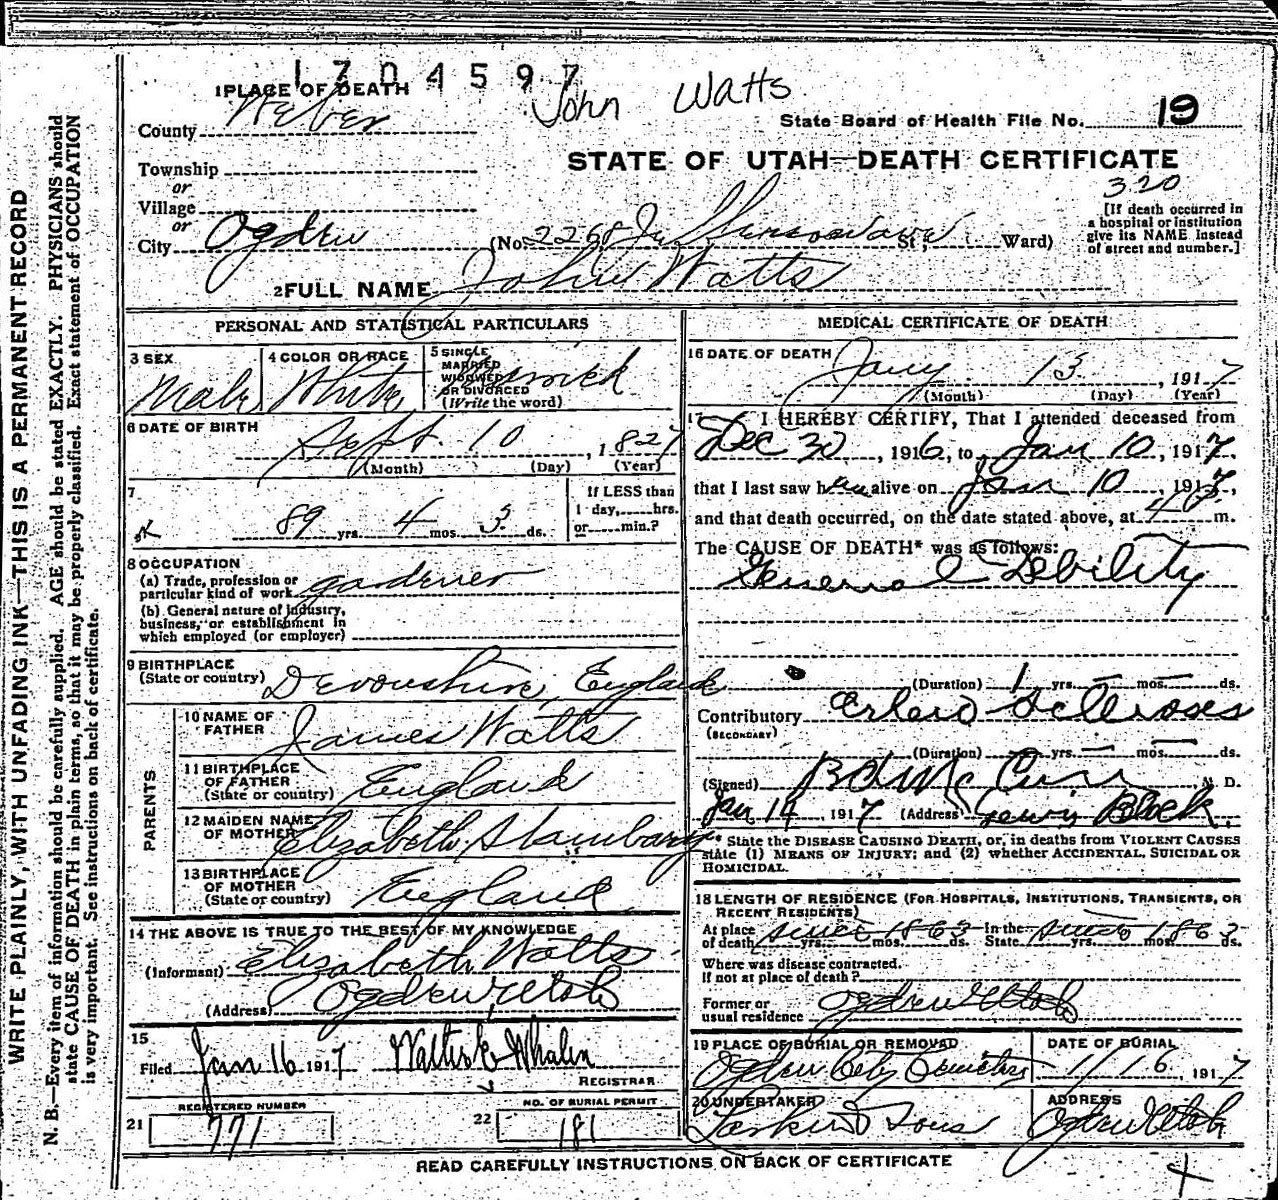 1704597
John Watts
1 PLACE OF DEATH
County Weber
State Board of Health File No. 19
STATE OF UTAH—DEATH CERTIFICATE
Township
or
Village
or
City Ogden (No. 2268 Jefferson ave St. Ward)
320
[If death occurred in
a hospital or institution
give its NAME instead
of street and number.]
2 FULL NAME John Watts
PERSONAL AND STATISTICAL PARTICULARS
3 SEX Male
4 COLOR OR RACE White
5 SINGLE,
MARRIED
WIDOWED
OR DIVORCED
(Write the word)
6 DATE OF BIRTH
Sept. 10, 1827
(Month) (Day) (Year)
7
89 yrs. 4 mos. 3 ds.
If LESS than
1 day, hrs.
or min.?
8 OCCUPATION
(a) Trade, profession or
particular kind of work gardener
(b) General nature of industry,
business, or establishment in
which employed (or employer)
9 BIRTHPLACE
(State or country) Devonshire, England
PARENTS
10 NAME OF
FATHER James Watts
11 BIRTHPLACE
OF FATHER
(State or country) England
12 MAIDEN NAME
OF MOTHER Elizabeth
13 BIRTHPLACE
OF MOTHER
(State or country) England
14 THE ABOVE IS TRUE TO THE BEST OF MY KNOWLEDGE
(Informant) Elizabeth Watts
(Address) Ogden Utah
15
Filed Jan 16 1917 Walter E Whalen
REGISTRAR
REGISTERED NUMBER
21 771
NO. OF BURIAL PERMIT
22 181
MEDICAL CERTIFICATE OF DEATH
16 DATE OF DEATH
Jany 13, 1917
(Month) (Day) (Year)
17 I HEREBY CERTIFY, That I attended deceased from
Dec 30, 1916, to Jan 10, 1917,
that I last saw him alive on Jan 10, 1917,
and that death occurred, on the date stated above, at m.
The CAUSE OF DEATH* was as follows:
General Debility
(Duration) 1 yrs. — mos. — ds.
Contributory
(SECONDARY)
(Duration) yrs. — mos. — ds.
(Signed) M. D.
Jan 14, 1917 (Address) Lewis Block.
* State the DISEASE CAUSING DEATH, or, in deaths from VIOLENT CAUSES
state (1) MEANS OF INJURY; and (2) whether ACCIDENTAL, SUICIDAL OR
HOMICIDAL.
18 LENGTH OF RESIDENCE (FOR HOSPITALS, INSTITUTIONS, TRANSIENTS, OR
RECENT RESIDENTS)
At place
of death since 1863 yrs. mos. ds. In the
State since 1863 yrs. mos. ds.
Where was disease contracted.
If not at place of death?
Former or
usual residence Ogden Utah
19 PLACE OF BURIAL OR REMOVAD
Ogden City Cemetery
DATE OF BURIAL
1/16, 1917
20 UNDERTAKER
Larkin & Sons
ADDRESS
Ogden Utah
READ CAREFULLY INSTRUCTIONS ON BACK OF CERTIFICATE
WRITE PLAINLY, WITH UNFADING INK—THIS IS A PERMANENT RECORD
N. B.—Every item of information should be carefully supplied. AGE should be stated EXACTLY. PHYSICIANS should
state CAUSE OF DEATH in plain terms, so that it may be properly classified. Exact statement of OCCUPATION
is very important. See instructions on back of certificate.